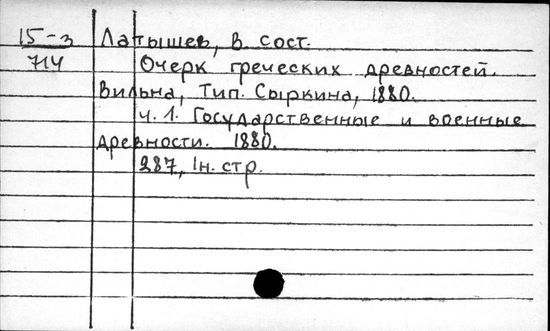 15-3 Латышев, В. сост.
714 Очерк греческих древностей.
Вильна, Тип. Сыркина, 1880.
ч. 1. Государственные и военные
древности. 1880.
287, 1н. стр.